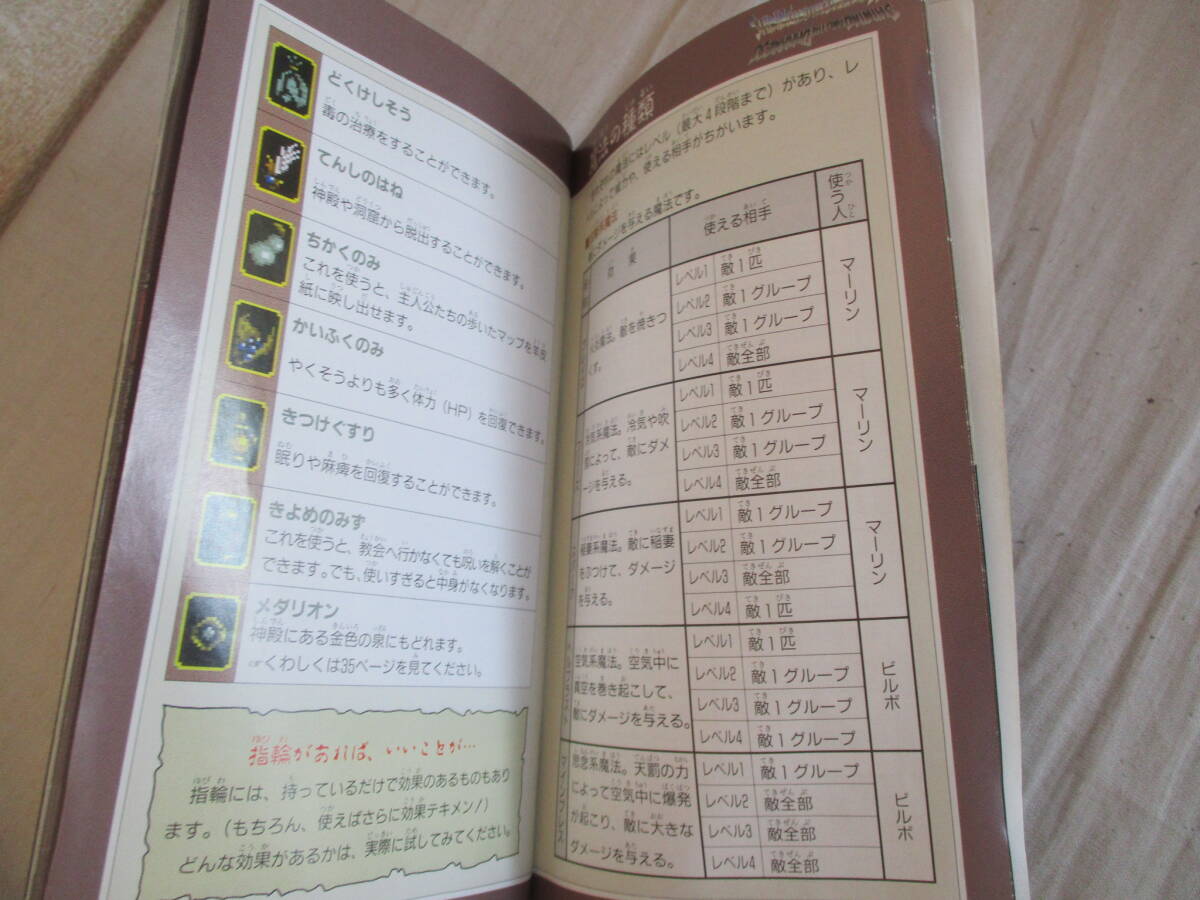 どくけしそう
毒の治療をすることができます。
てんしのはね
神殿や洞窟から脱出することができます。
ちかくのみ
これを使うと、主人公たちの歩いたマップを羊皮
紙に映し出せます。
かいふくのみ
やくそうよりも多く体力（HP）を回復できます。
きつけぐすり
眠りや麻痺を回復することができます。
きよめのみず
これを使うと、教会へ行かなくても呪いを解くことが
できます。でも、使いすぎると中身がなくなります。
メダリオン
神殿にある金色の泉にもどれます。
☞くわしくは35ページを見てください。
指輪があれば、いいことが…
指輪には、持っているだけで効果のあるものもあり
ます。（もちろん、使えばさらに効果テキメン！）
どんな効果があるかは、実際に試してみてください。
法の種類
の魔法にはレベル（最大4段階まで）があり、レ
によって威力や、使える相手がちがいます。
ダメージを与える魔法です。
効果
使える相手
使う人
敵を焼きつ
くす。
レベル1 敵1匹
レベル2 敵1グループ
レベル3 敵1グループ
レベル4 敵全部
マーリン
冷気系魔法。冷気や吹
雪によって、敵にダメ
ージを与える。
レベル1 敵1匹
レベル2 敵1グループ
レベル3 敵1グループ
レベル4 敵全部
マーリン
稲妻系魔法。敵に稲妻
をぶつけて、ダメージ
を与える。
レベル1 敵1グループ
レベル2 敵1グループ
レベル3 敵全部
レベル4 敵1匹
マーリン
空気系魔法。空気中に
真空を巻き起こして、
敵にダメージを与える。
レベル1 敵1匹
レベル2 敵1グループ
レベル3 敵1グループ
レベル4 敵1グループ
ビルボ
マインブレス
思念系魔法。天罰の力
によって空気中に爆発
が起こり、敵に大きな
ダメージを与える。
レベル1 敵1グループ
レベル2 敵全部
レベル3 敵全部
レベル4 敵全部
ビルボ